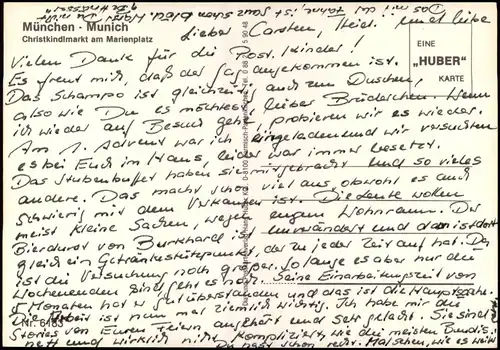 München · Munich
Christkindlmarkt am Marienplatz
EINE
„HUBER"
KARTE
Lieber Carsten, Heidi und liebe
Vielen Dank für die Post. Kinder!
Es freut mich, daß der angekommen ist.
Das Schampo ist gleichzeitig auch zum Duschen,
also wie Du es möchtest, lieber Brüderchen. Wenn
ich wieder auf Besuch gehe, probieren wir es wieder.
Am 1. Advent war ich eingeladen und wir versuchten
es bei Euch im Haus, leider war immer besetzt.
Das Stubenbuffet haben sie mitgebracht und so vieles
andere. Das macht schon viel aus, obwohl es auch
schwierig mit dem Verkaufen ist. Die Leute wollen
meist kleine Sachen, wegen engem Wohnraum. Der
Bierdurst von Burkhard ist unverändert und da ist dort
gleich ein Getränkestützpunkt, der zu jeder Zeit auf hat. Da
ist die Versuchung noch größer. Solange es aber nur die
Wochenenden sind geht es noch. Seine Einarbeitungszeit von
Monaten hat er gut überstanden und das ist die Hauptsache.
Die Arbeit ist nun mal ziemlich wichtig. Ich habe mir die
Stories von Euren Feiern angehört und sehr gelacht. Sie sind
nett und wirklich nicht kompliziert, wie die meisten Bundis.
Du hast schon recht. Malschen, wie es wird
Nr. 6163